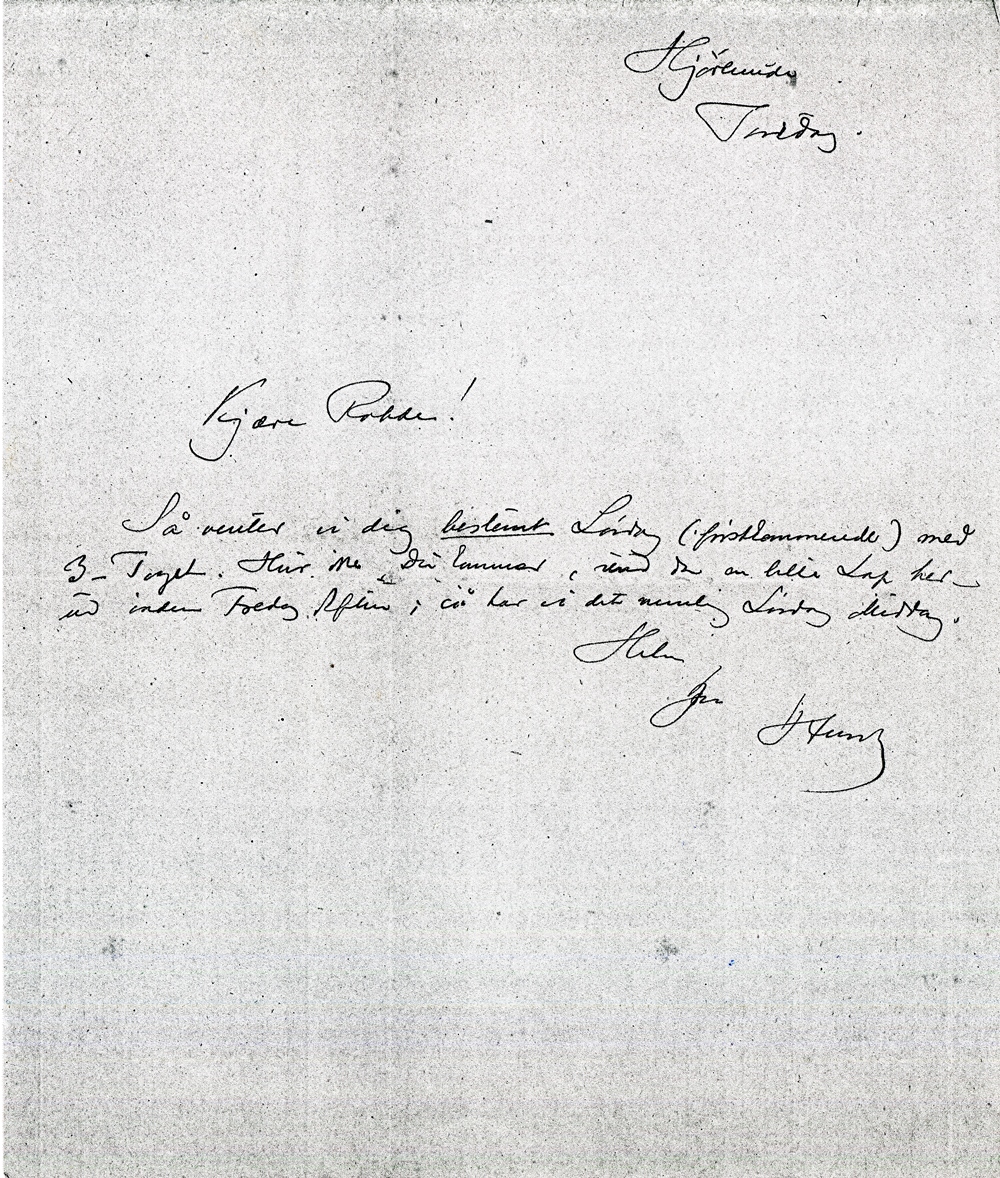 Hjörlunde
Tirsdag.
Kjære Rohde!
Så venter vi dig bestemt Lördag (: förstkommende) med
3-Toget. Hvis ikke Du kommer, send da en lille Lap her-
ud inden Fredag Aften; så har vi det nemlig Lördag Middag.
Hilsen
fra